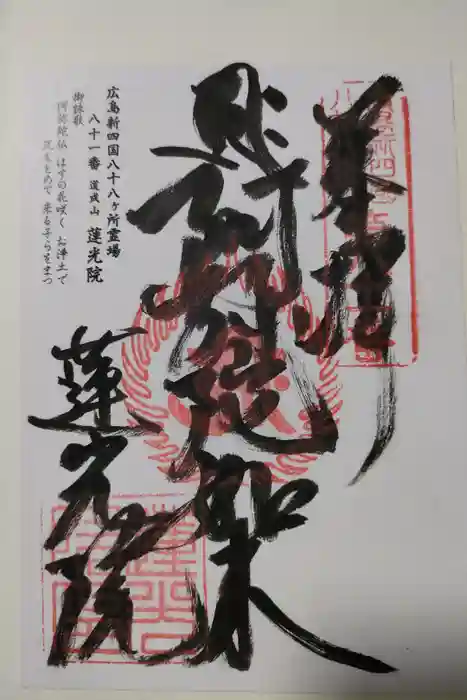 奉拝
阿弥陀如来
蓮光院
広島新四国八十八ヶ所霊場
八十一番 道成山 蓮光院
御詠歌
阿弥陀仏 はすの花咲く お浄土で
沉を木めて 来る子らをまつ